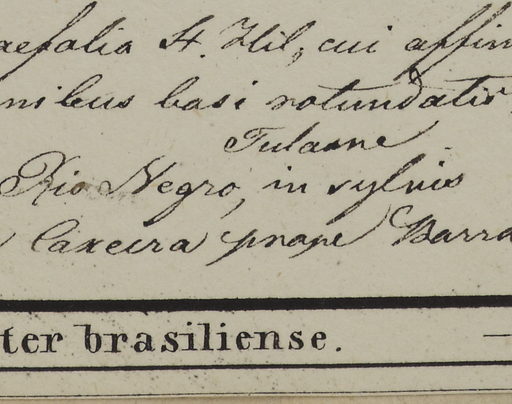 aefolia St. Hil, cui affin
nibus basi rotundatis
Tulasne
Rio Negro, in sylvis
Caxeira prope Barra
ter brasiliense. —